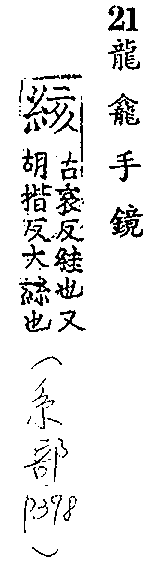 21 龍龕手鏡
絯 古哀反絓也又
胡揩反大絲也
(糸部 p398)